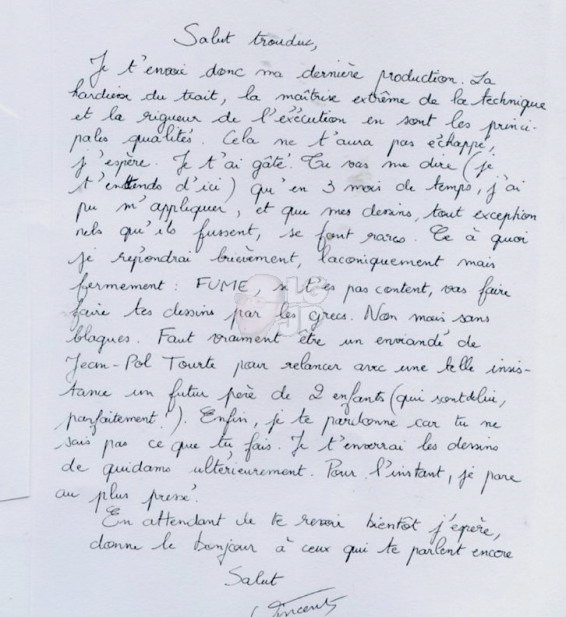 Salut trouduc,
Je t'envoi donc ma dernière production. La
hardiesse du trait, la maîtrise extrême de la technique
et la rigueur de l'exécution en sont les princi-
pales qualités. Cela ne t'aura pas échappé,
j'espère. Je t'ai gâté. Tu vas me dire (je
t'entends d'ici) qu'en 3 mois de temps, j'ai
pu m'appliquer, et que mes dessins, tout exception
nels qu'ils fussent, se font rares. Ce à quoi
je répondrai brièvement, laconiquement mais
fermement : FUME, si t'es pas content, vas faire
faire tes dessins par les grecs. Non mais sans
blagues. Faut vraiment être un enviandé de
Jean-Pol Tourte pour relancer avec une telle insis-
tance un futur père de 2 enfants (qui sont de lui,
parfaitement !). Enfin, je te pardonne car tu ne
sais pas ce que tu fais. Je t'enverrai les dessins
de quidams ultérieurement. Pour l'instant, je pare
au plus pressé.
En attendant de te revoir bientôt j'epère,
donne le bonjour à ceux qui te parlent encore
Salut
Vincent